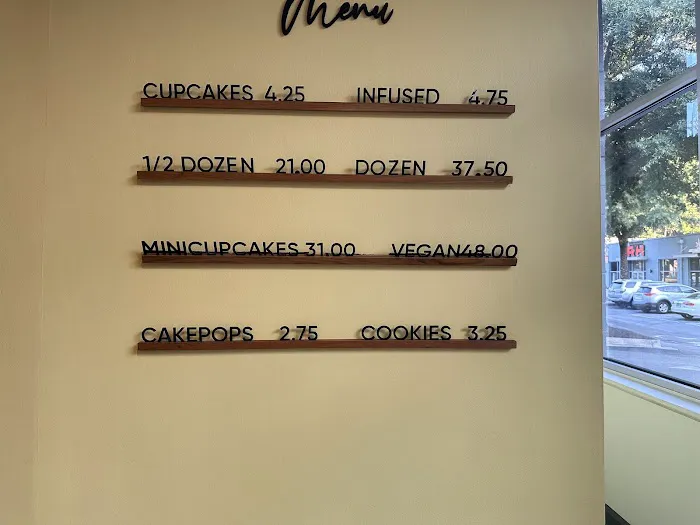 Menu
CUPCAKES 4.25 INFUSED 4.75
1/2 DOZEN 21.00 DOZEN 37.50
MINICUPCAKES 31.00 VEGAN 48.00
CAKEPOPS 2.75 COOKIES 3.25